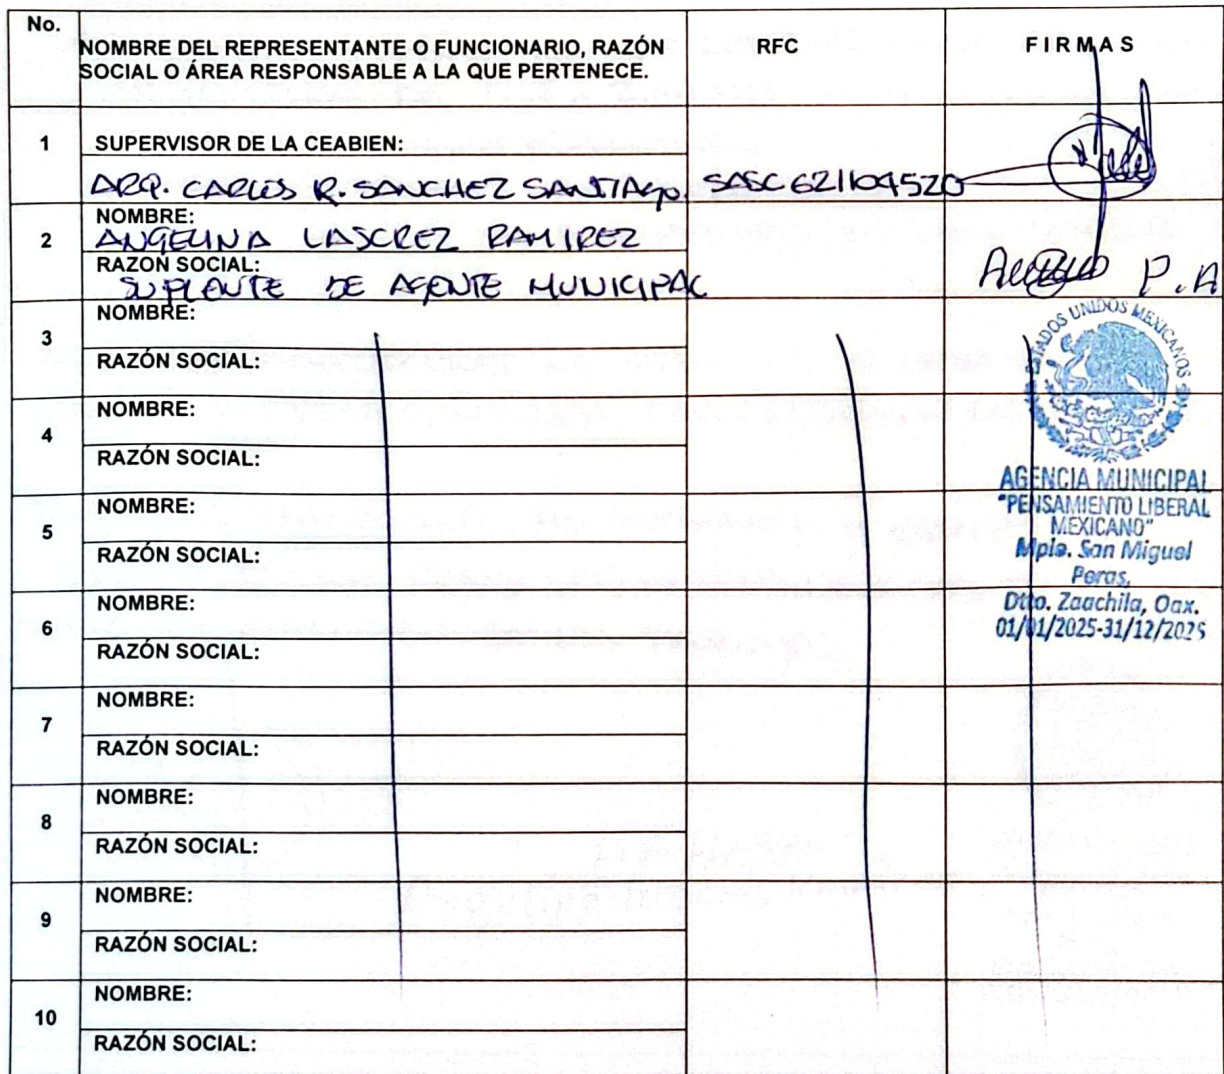 No.
NOMBRE DEL REPRESENTANTE O FUNCIONARIO, RAZÓN
SOCIAL O ÁREA RESPONSABLE A LA QUE PERTENECE.
RFC
FIRMAS
1
SUPERVISOR DE LA CEABIEN:
ARQ. CARLOS R. SANCHEZ SANTIAGO. SASC621104520
2
NOMBRE:
ANGELINA LASCREZ RAMIREZ
RAZON SOCIAL:
SUPLENTE DE AGENTE MUNICIPAL
P.A
3
NOMBRE:
RAZÓN SOCIAL:
4
NOMBRE:
RAZÓN SOCIAL:
5
NOMBRE:
RAZÓN SOCIAL:
6
NOMBRE:
RAZÓN SOCIAL:
7
NOMBRE:
RAZÓN SOCIAL:
8
NOMBRE:
RAZÓN SOCIAL:
9
NOMBRE:
RAZÓN SOCIAL:
10
NOMBRE:
RAZÓN SOCIAL:
ESTADOS UNIDOS MEXICANOS
AGENCIA MUNICIPAL
"PENSAMIENTO LIBERAL
MEXICANO"
Mpio. San Miguel
Peras,
Dtto. Zaachila, Oax.
01/01/2025-31/12/2025